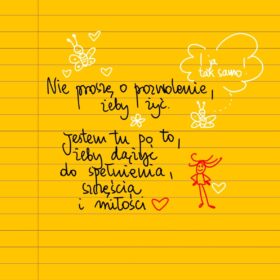 Nie proszę o pozwolenie,
żeby żyć.
i ja
tak samo!
Jestem tu po to,
żeby dążyć
do spełnienia,
szczęścia
i miłości